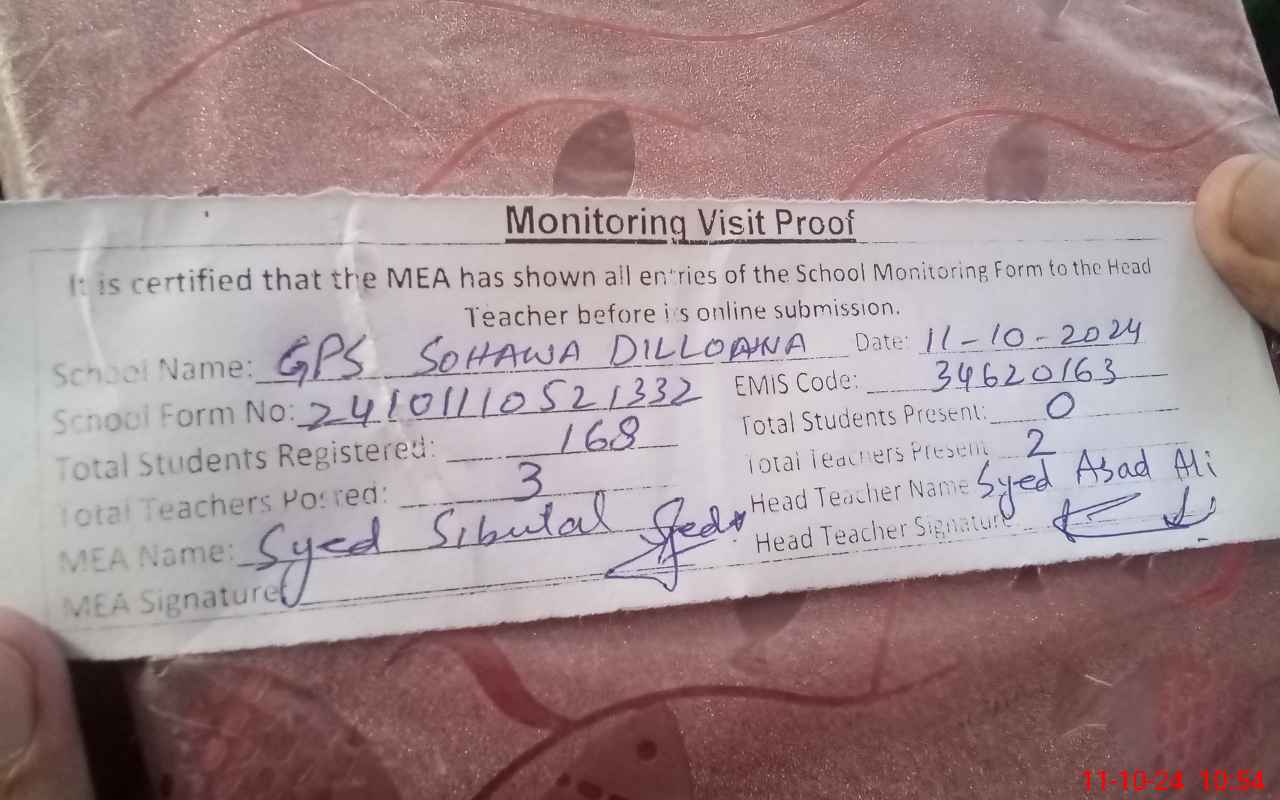 Monitoring Visit Proof
It is certified that the MEA has shown all entries of the School Monitoring Form to the Head
Teacher before its online submission.
School Name: GPS SOHAWA DILLOANA Date: 11-10-2024
School Form No: 241011105213 32 EMIS Code: 34620163
Total Students Registered: 168 Total Students Present: 0
Total Teachers Posted: 3 Total Teachers Present 2
MEA Name: Syed Sibutal Head Teacher Name Syed Asad Ali
MEA Signature Head Teacher Signature
11-10-24 10:54